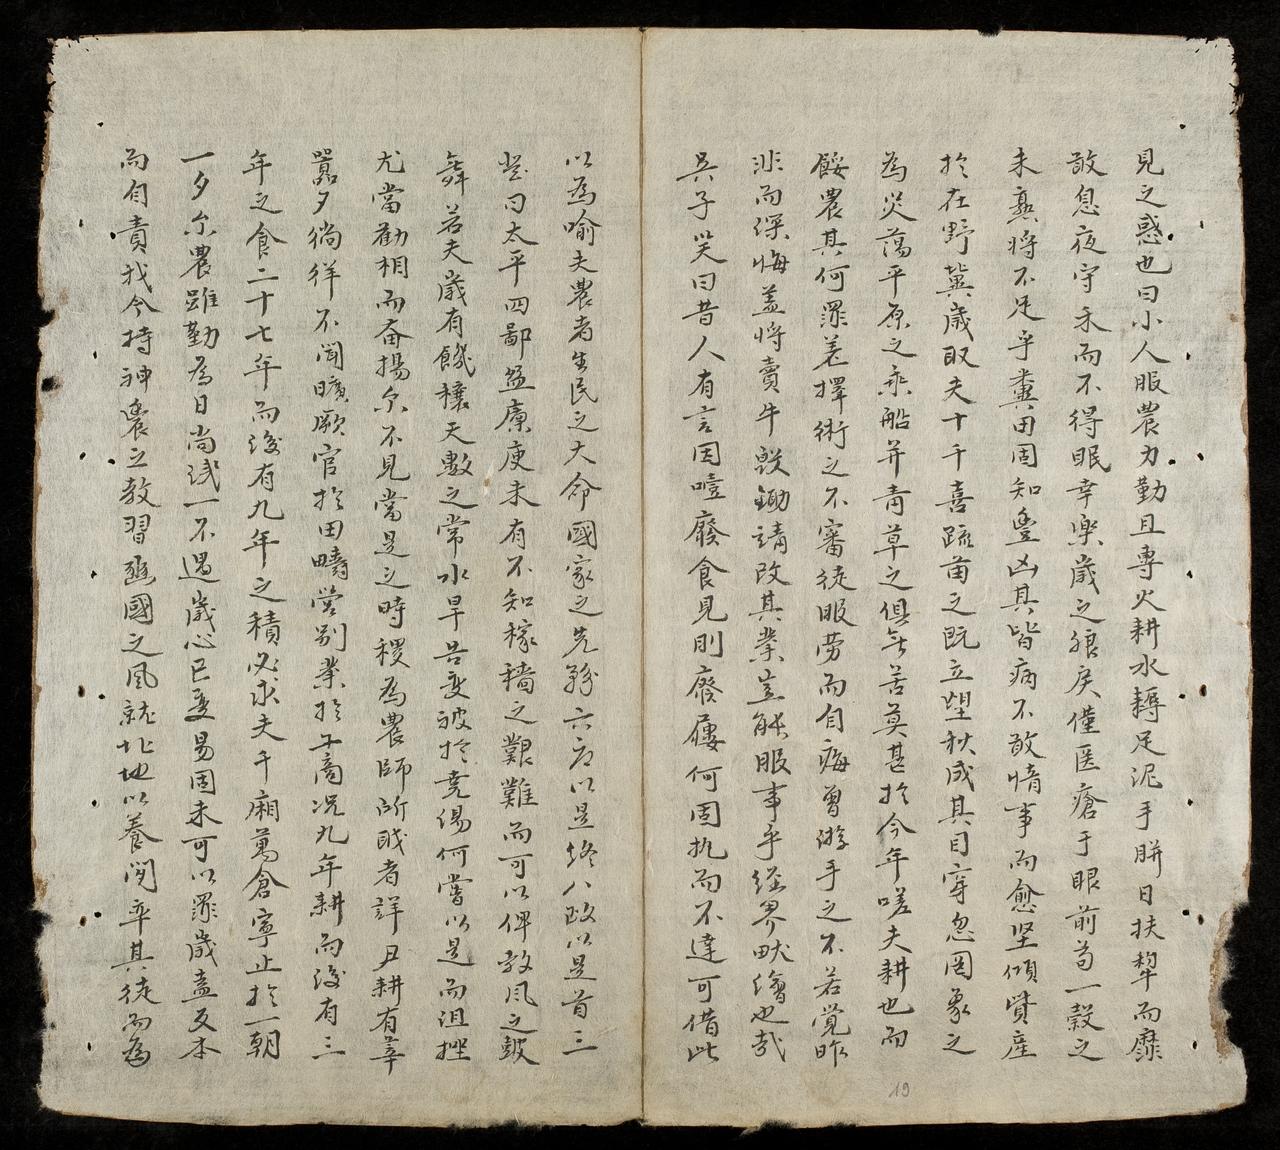 見之惑也曰小人服農力勤且專火耕水耨足泥手胼日扶犂而靡
敢息夜守禾而不得眠幸樂歲之狼戾僅医瘡于眼前苟一穀之
未熟將不足乎糞田固知豐凶其皆病不敢惰事而愈坚傾貲産
於在野冀歲取夫十千喜疏苗之既立望秋成其目穿忽罔象之
為災蕩平原之乘船并青草之俱無苦莫甚於今年嗟夫耕也而
餒農其何罪羌擇術之不審徒服劳而自痗曾游手之不若覺昨
非而深悔盖將賣牛毀鋤請改其業豈能服事乎経界畎澮也哉
吳子笑曰昔人有言因噎廢食見刖廢屨何固执而不達可借此
以為喻夫農者生民之大命國家之先務六府以是終八政以是首三
登曰太平四鄙盈廪庾未有不知稼穡之艱難而可以俾敎風之皷
舞若夫歲有饑穰天數之常水旱告变被於堯湯何嘗以是而沮挫
尤當勸相而奋揚尔不見當是之時稷為農師所戝者詳尹耕有莘
囂夕徜徉不聞曠厥官於田疇営别業於工商况九年耕而後有三
年之食二十七年而後有九年之積必求夫千廂萬倉寧止於一朝
一夕尔農雖勤為日尚浅一不遇歲心已变易固未可以罪歲盍反本
而自責我今持神農之教習豳國之風就北地以養閑率其徒而為
19